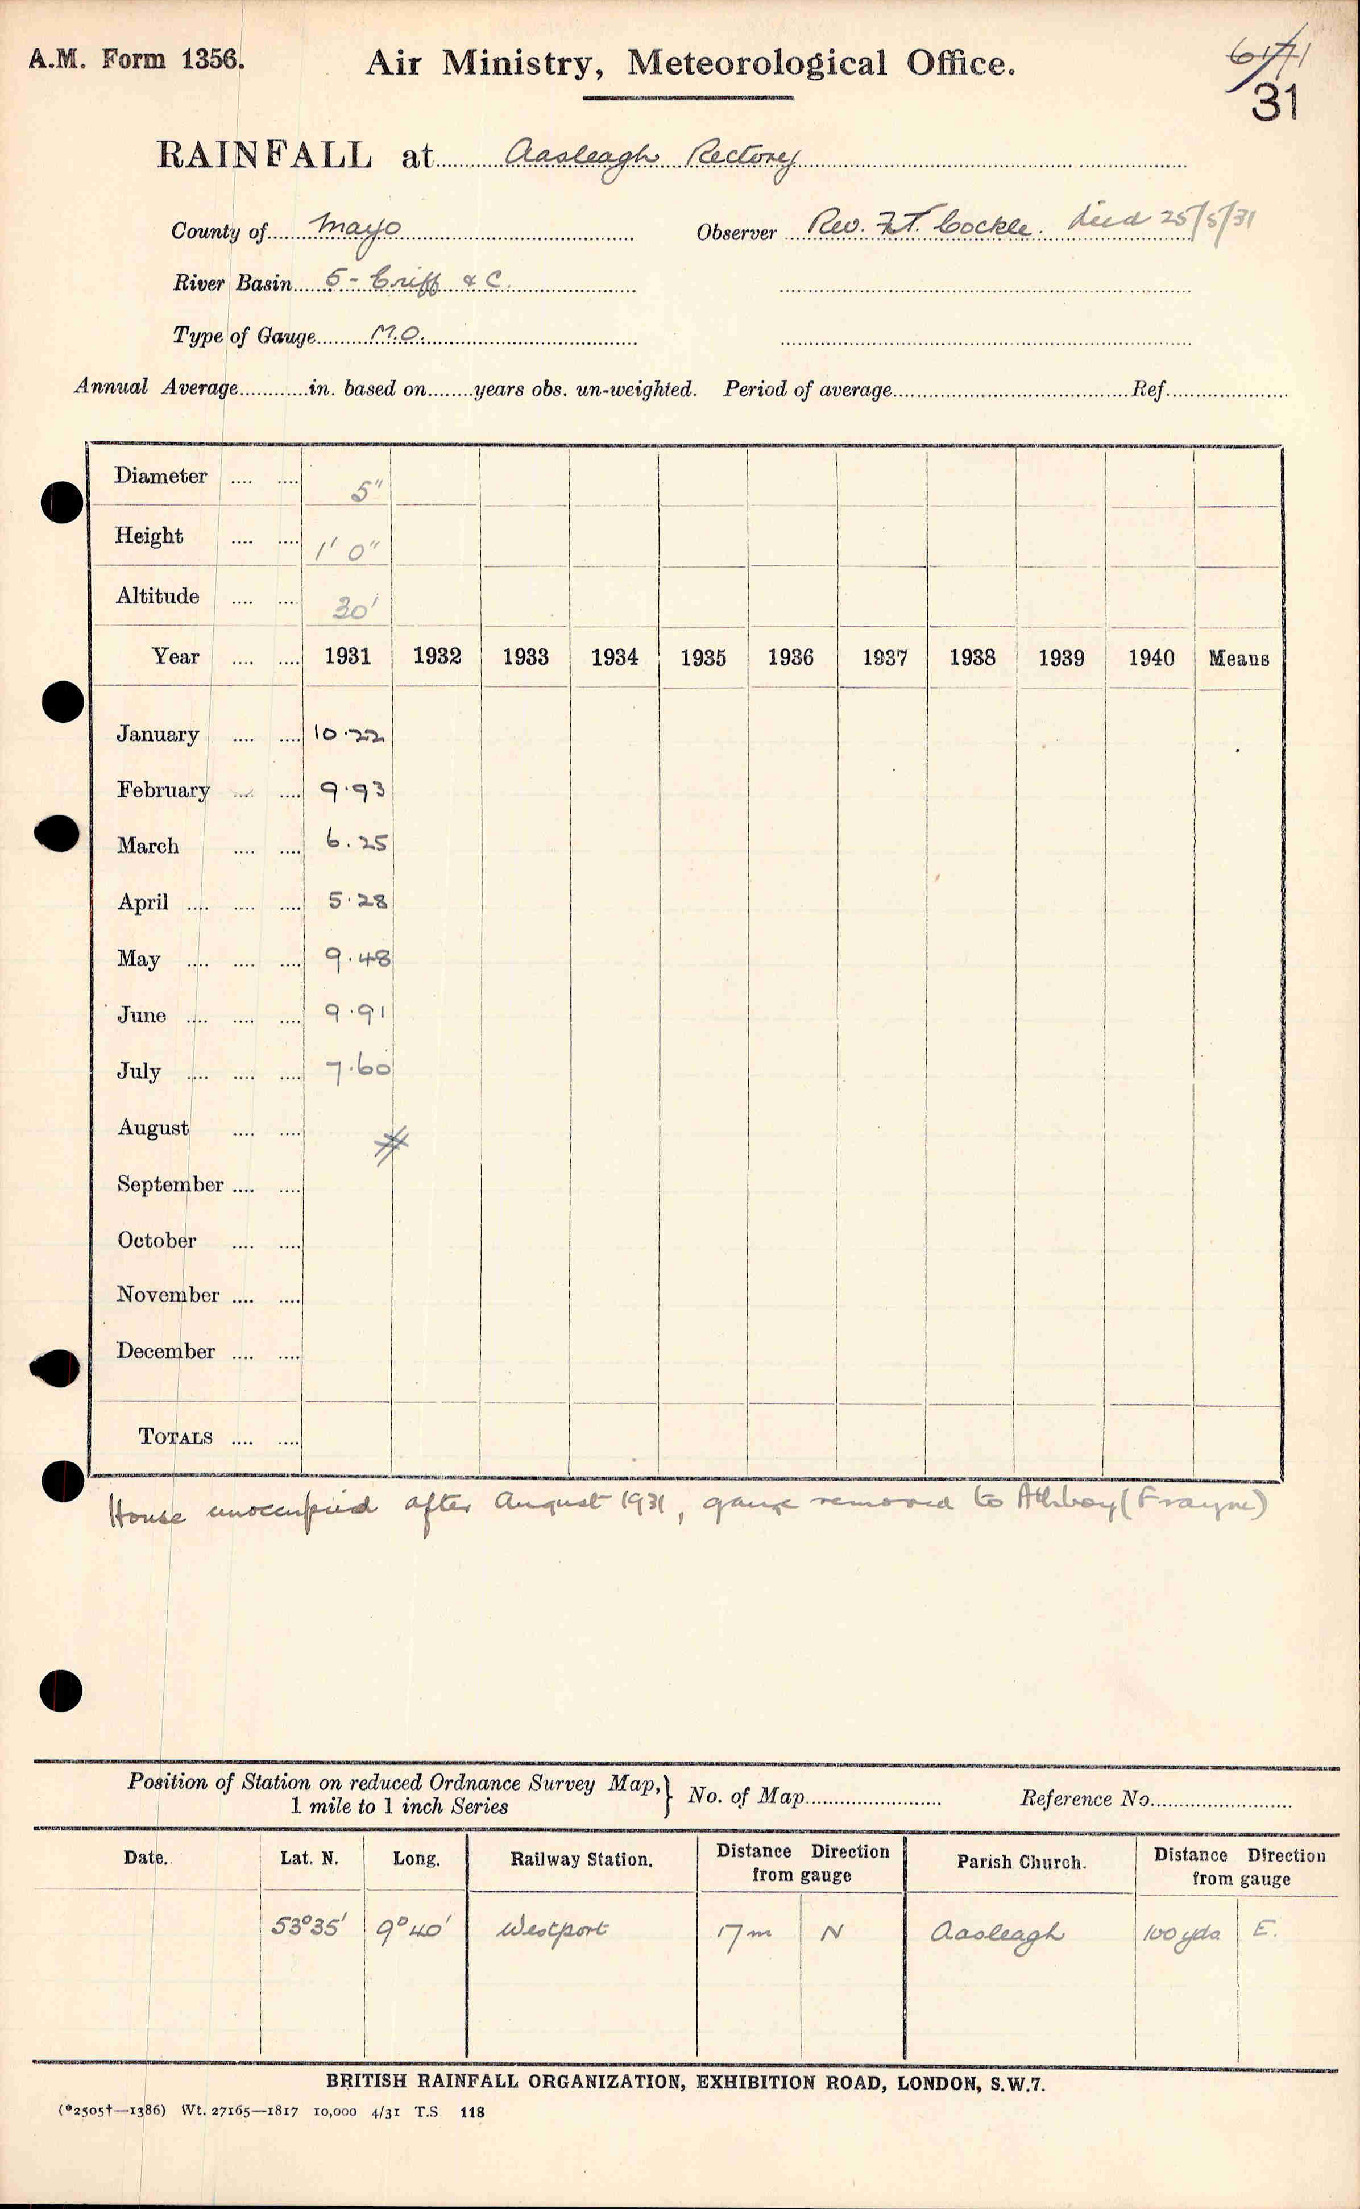 A.M. Form 1356.
Air Ministry, Meteorological Office.
31
RAINFALL at Aasleagh Rectory
County of Mayo
Observer Rev. F.T. Cockle. Died 25/5/31
River Basin 5 - Eriff & C.
Type of Gauge M.O.
Annual Average in. based on years obs. un-weighted. Period of average Ref.
Diameter 5"
Height 1' 0"
Altitude 30'
Year 1931 1932 1933 1934 1935 1936 1937 1938 1939 1940 Means
January 10.22
February 9.93
March 6.25
April 5.28
May 9.48
June 9.91
July 7.60
August
September
October
November
December
TOTALS
House unoccupied after August 1931, gauge removed to Athboy (Frayne)
Position of Station on reduced Ordnance Survey Map,} No. of Map Reference No.
1 mile to 1 inch Series
Date. Lat. N. Long. Railway Station. Distance Direction from gauge Parish Church. Distance Direction from gauge
53°35' 9°40' Westport 17 m N Aasleagh 100 yds E.
BRITISH RAINFALL ORGANIZATION, EXHIBITION ROAD, LONDON, S.W.7.
(*2505†—1386) Wt. 27165—1817 10,000 4/31 T.S. 118